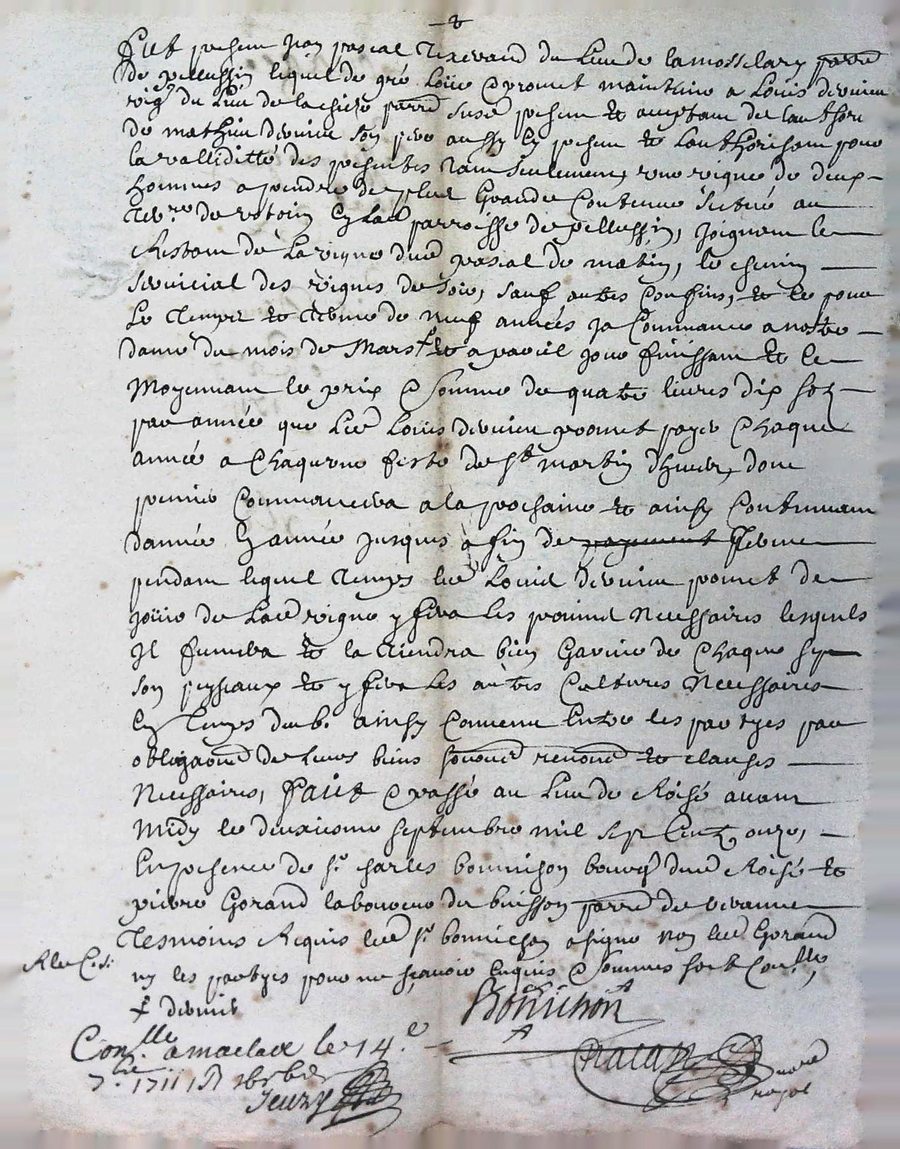 Fut presem Jean pascal Tixerand du Lieu de la
de pellussin lequel de gré Loüe & promet maintenir a Louis
vig. du Lieu de parre susd. presem & acceptam de lauthori
de mathieu son pere aussy Cy presem & Lauthorisam pour
la valliditté des presentes tam seulement, une vigne de deux
hommes a prendre de plus Grande Contenue scitué au
Terre. de Cy Lad. parroisse de pellussin, joignam le
Restam de La vigne dud. pascal de matin, le chemin
des vignes de soir, sauf autres Confins, & ce pour
Le Temps & Terme de neuf années ja Commancé a nostre
dame du mois de Mars & a pareil jour finissam & ce
Moyennam le prix & somme de quatre livres dix solz
par année que Led. Louis promet payer Chaque
année a Chaqune feste de St. martin dhiver, dont
premier Commancera a la prochaine & ainsy Continuam
dannée En année jusques a fin de payement Terme
pendam lequel Temps led. Louis promet de
joüir de Lad. vigne y fera les provins Necessaires lesquels
Il fumera & la Tiendra bien Garnie de Chaque
son peyssaux & y fera Les autres Cultures Necessaires
En Temps du. b. ainsy Convenu Entre les partyes par
obligaõns de Leurs biens renonc. & clauses
Necessaires, faict & passé au Lieu de Roisé avant
Midy le deuxiesme septembre mil sept Centz onze,
En presence de Sr. charles bonnichon bourg. dud. Roisé &
pierre Gorand laboureur du buisson parre de veranne
Tesmoins Requis led. Sr. bonnichon a signé non led. Gorand
ny les partyes pour ne sçavoir Enquis & sommes
Bonnichon
Conlle. a maclas le 14.e
7.bre 1711
notre
royal